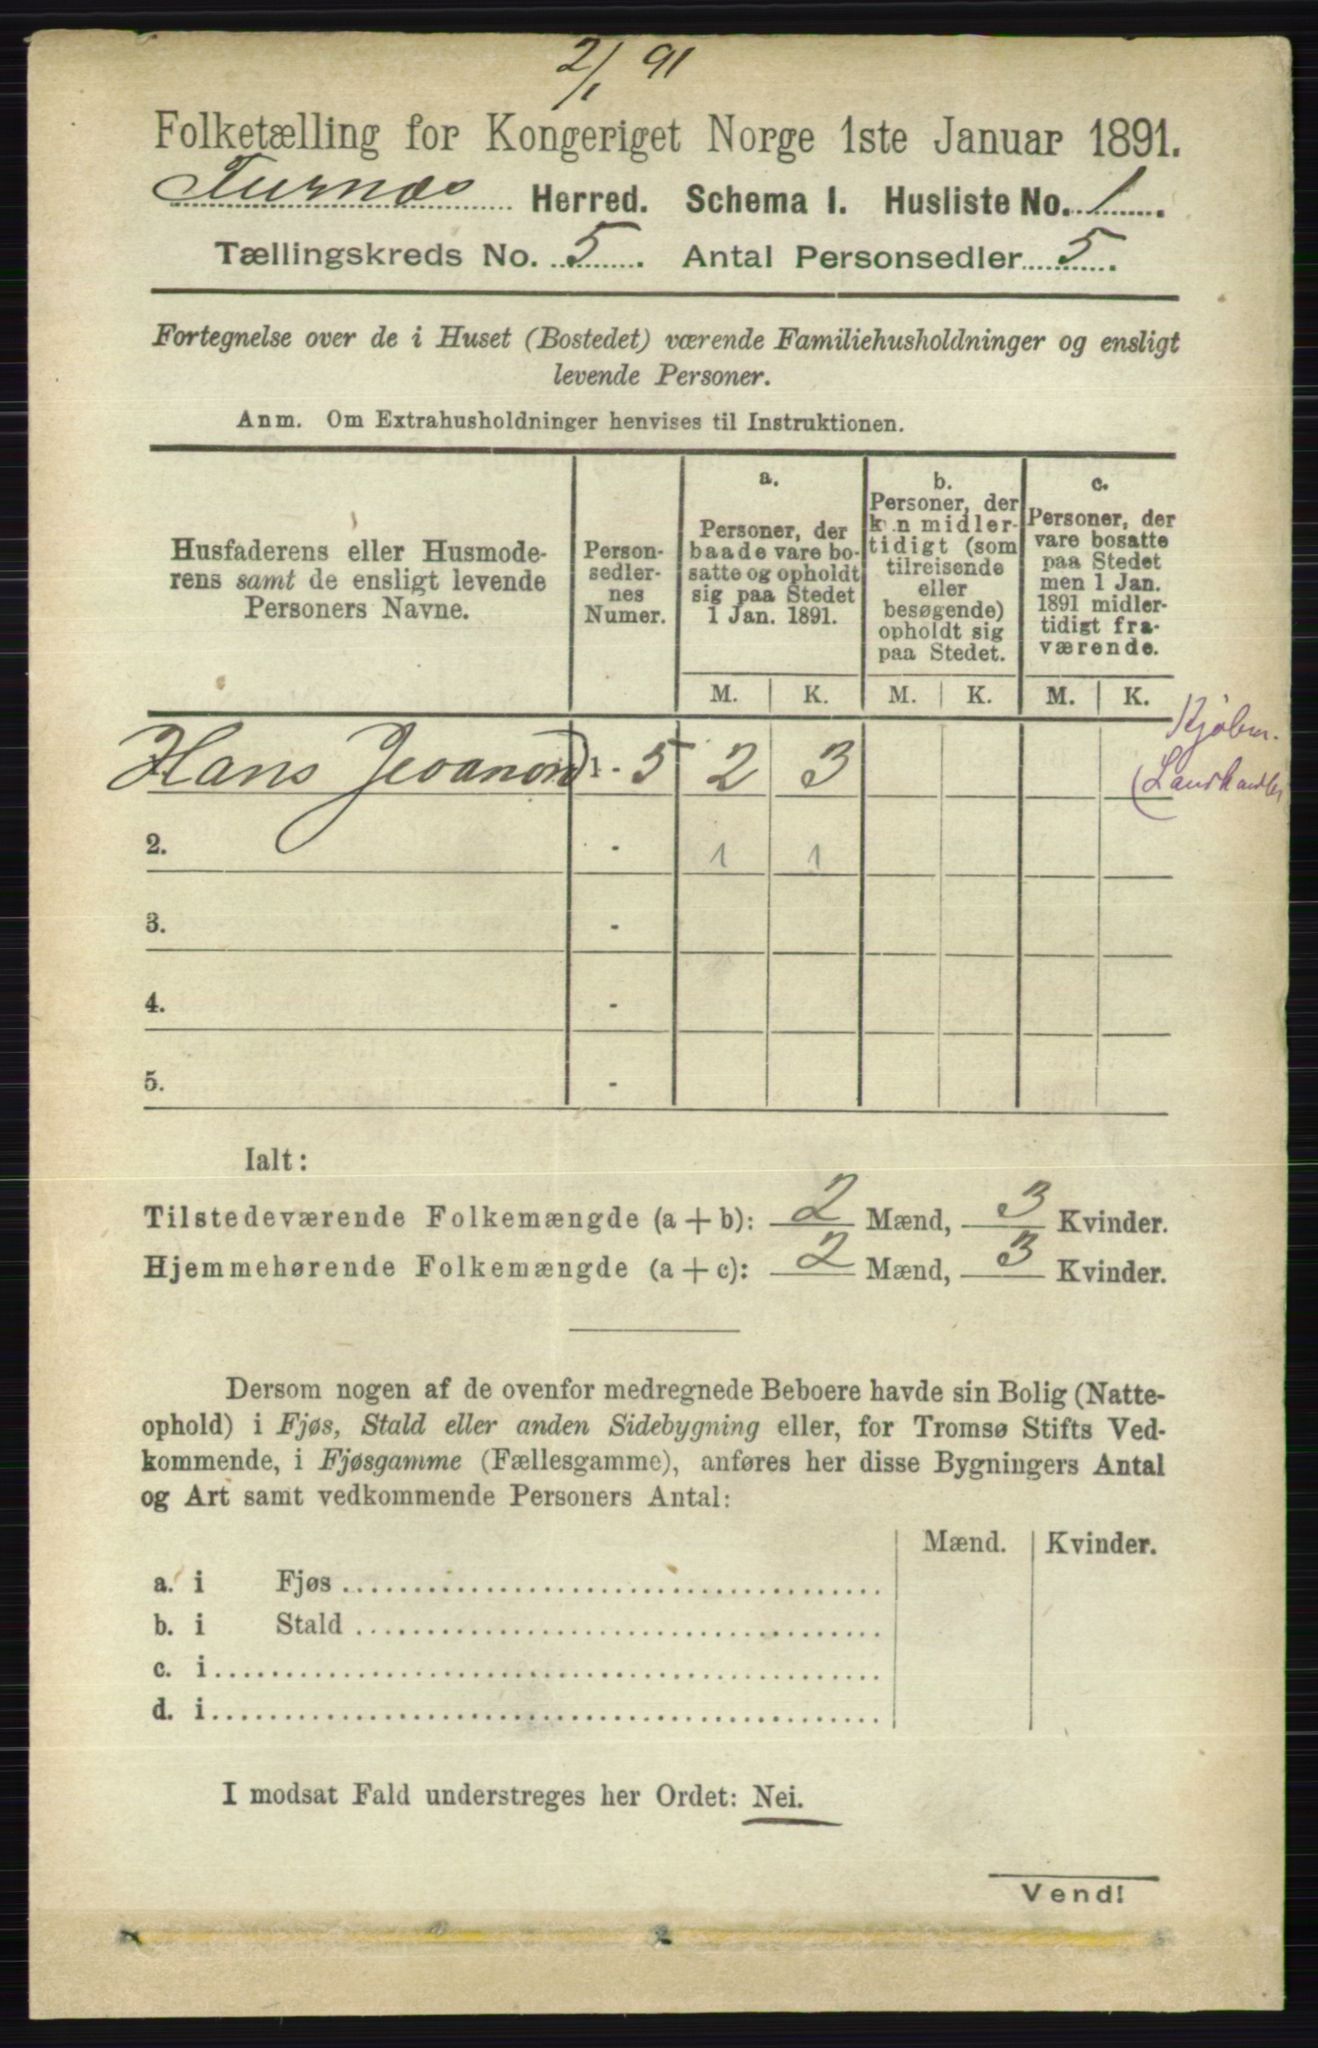 2/1 91
Folketælling for Kongeriget Norge 1ste Januar 1891.
Furnæs Herred. Schema I. Husliste No. 1.
Tællingskreds No. 5. Antal Personsedler 5.
Fortegnelse over de i Huset (Bostedet) værende Familiehusholdninger og ensligt
levende Personer.
Anm. Om Extrahusholdninger henvises til Instruktionen.
Husfaderens eller Husmode-
rens samt de ensligt levende
Personers Navne.
Person-
sedler-
nes
Numer.
a.
Personer, der
baade vare bo-
satte og opholdt
sig paa Stedet
1 Jan. 1891.
b.
Personer, der
kun midler-
tidigt (som
tilreisende
eller
besøgende)
opholdt sig
paa Stedet.
c.
Personer, der
vare bosatte
paa Stedet
men 1 Jan.
1891 midler-
tidigt fra-
værende.
M. K. M. K. M. K.
Hans 1 - 5 2 3
Kjøbm.
(Landhandler
2. - 1 1
3. -
4. -
5. -
Ialt:
Tilstedeværende Folkemængde (a + b): 2 Mænd, 3 Kvinder.
Hjemmehørende Folkemængde (a + c): 2 Mænd, 3 Kvinder.
Dersom nogen af de ovenfor medregnede Beboere havde sin Bolig (Natte-
ophold) i Fjøs, Stald eller anden Sidebygning eller, for Tromsø Stifts Ved-
kommende, i Fjøsgamme (Fællesgamme), anføres her disse Bygningers Antal
og Art samt vedkommende Personers Antal:
Mænd. Kvinder.
a. i Fjøs
b. i Stald
c. i
d. i
I modsat Fald understreges her Ordet: Nei.
Vend!